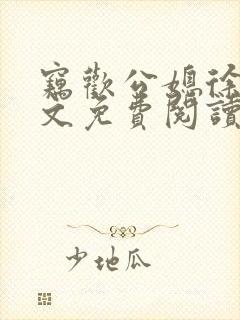 竊歡公媳徐
文免費閱讀
少地瓜